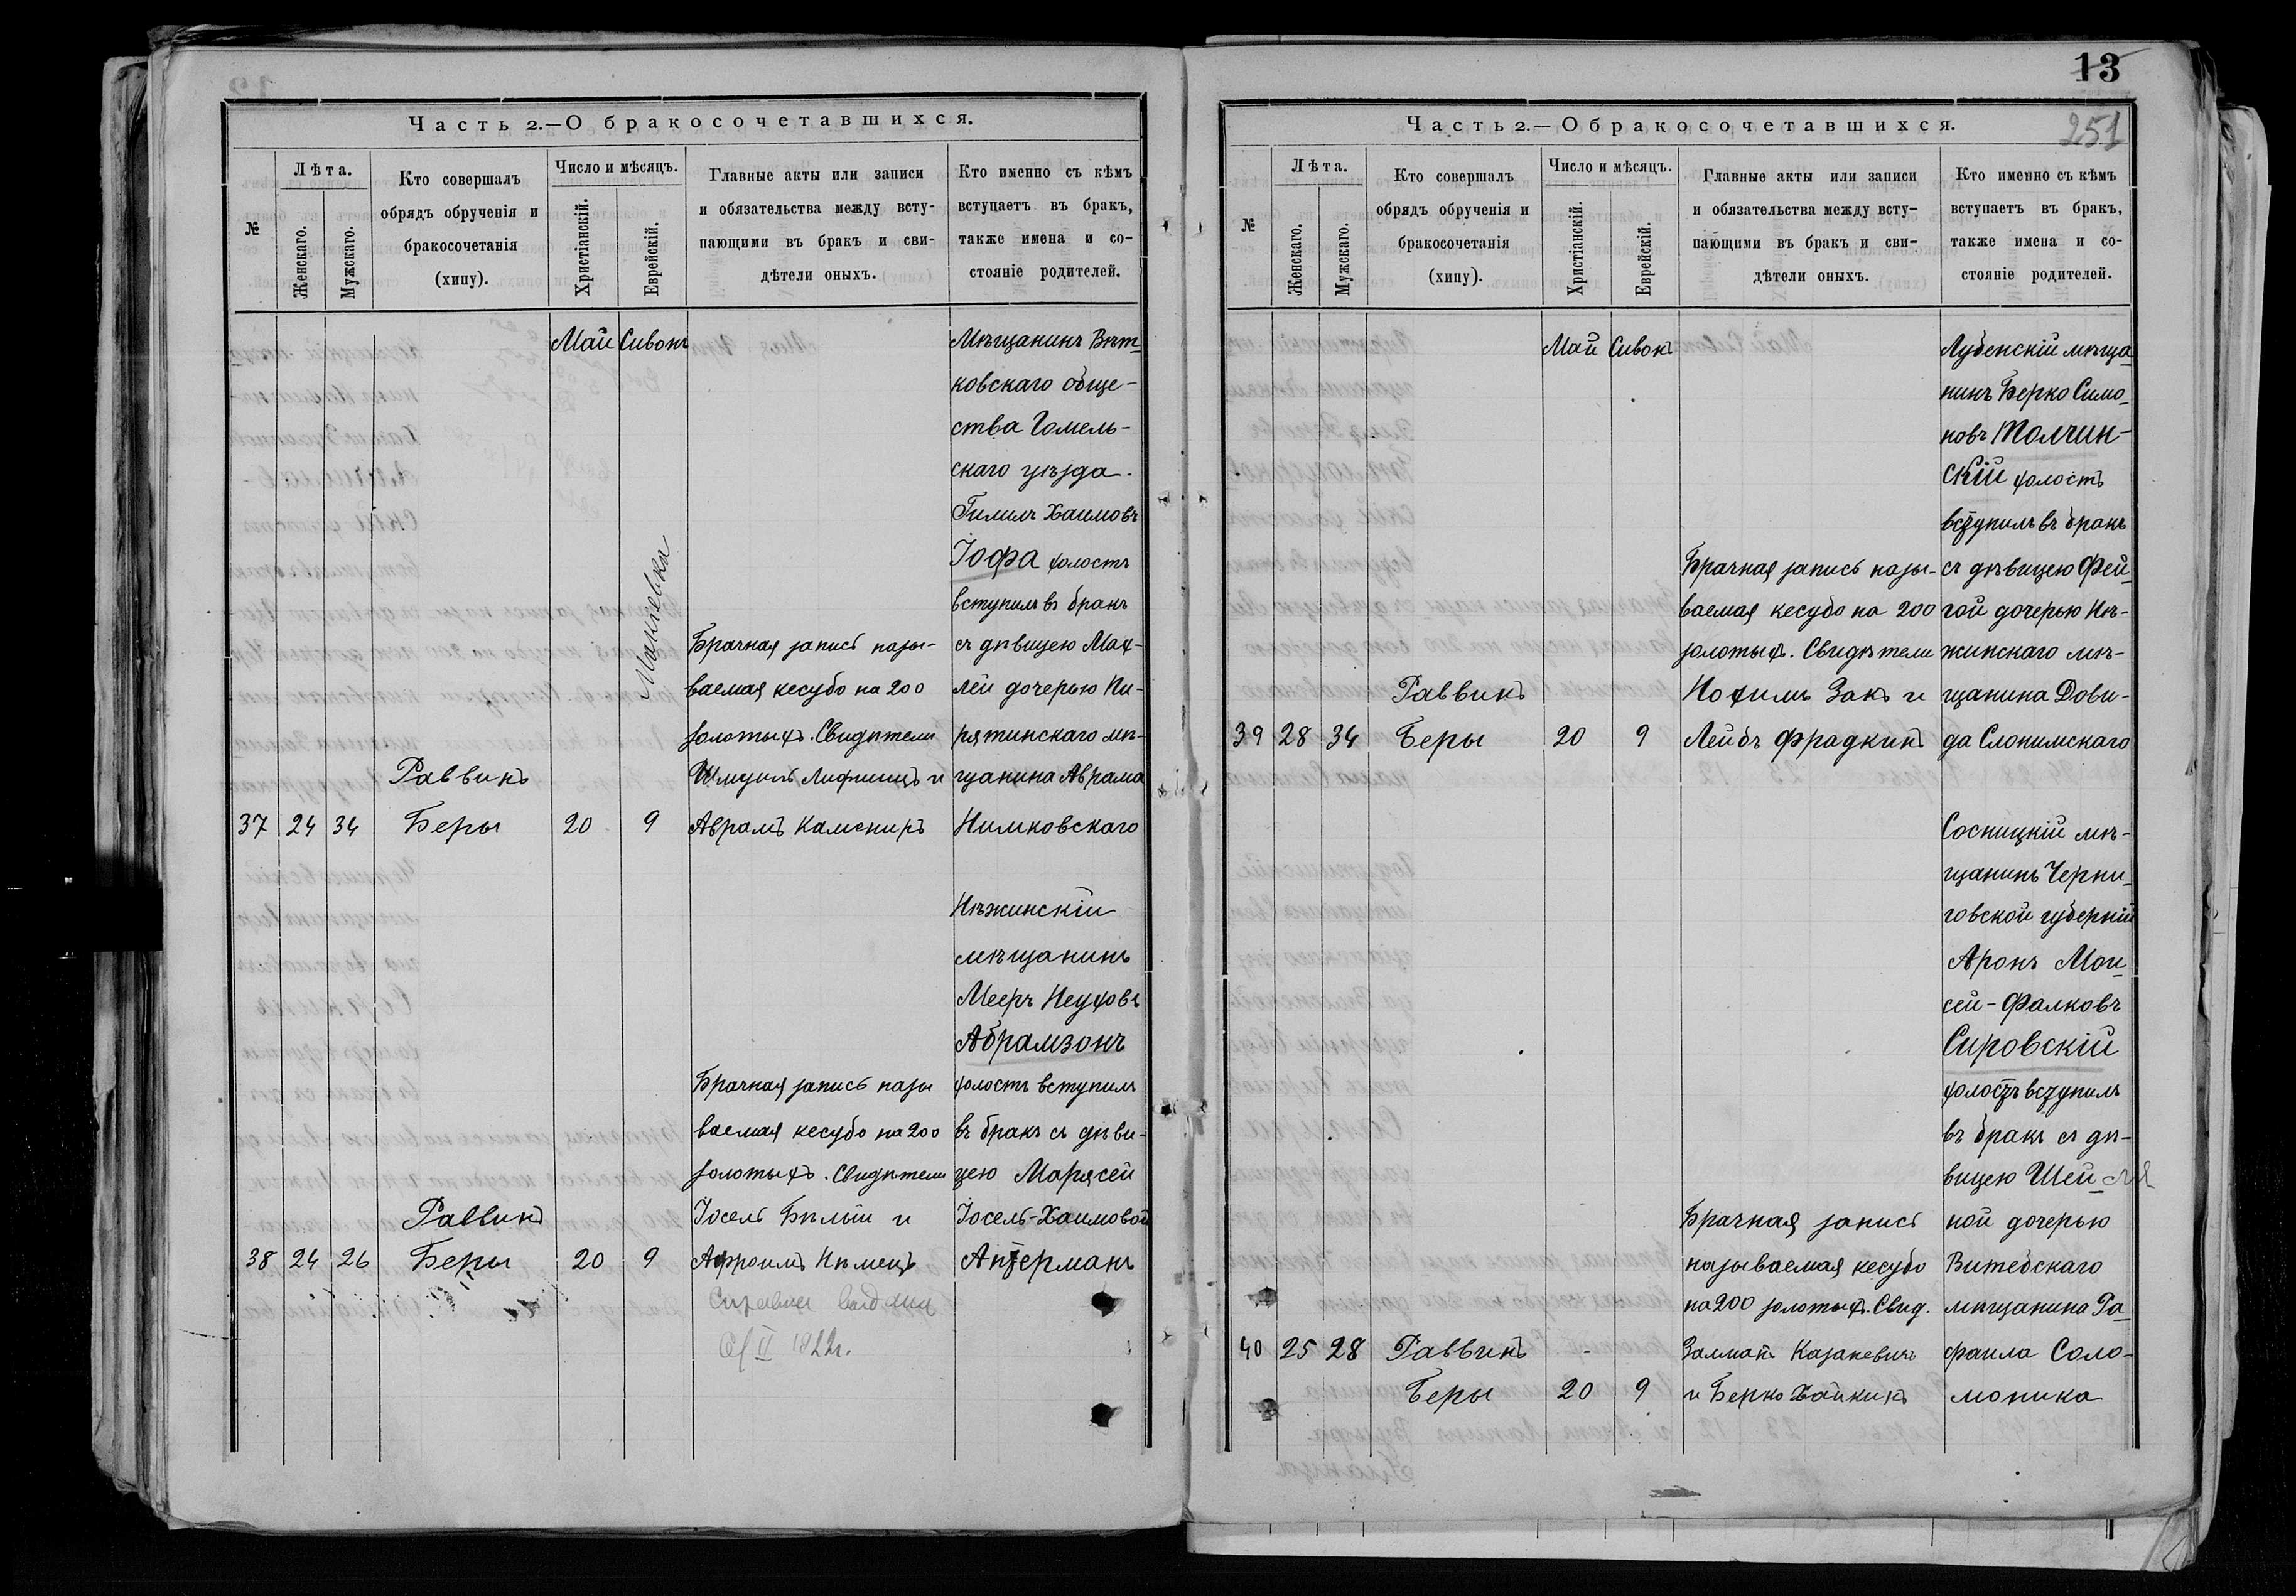 Часть 2.—О бракосочетавшихся.
№
Лѣта.
Женскаго.
Мужскаго.
Кто совершалъ
обрядъ обрученія и
бракосочетанія
(хипу).
Число и мѣсяцъ.
Христіанскій.
Еврейскій.
Главные акты или записи
и обязательства между всту-
пающими въ бракъ и сви-
дѣтели оныхъ.
Кто именно съ кѣмъ
вступаетъ въ бракъ,
также имена и со-
стояніе родителей.
Май Сивонъ
37 24 34
Раввинъ
Беры
20 9
Брачная запись назы-
ваемая кесубо на 200
золотыхъ. Свидѣтели
Шмуилъ Лифшицъ и
Аврамъ Камениръ
Мѣщанинъ Вѣт-
ковскаго обще-
ства Гомель-
скаго уѣзда.
Гилилъ Хаимовъ
Іофа холостъ
вступилъ въ бракъ
съ дѣвицею Мах-
лей дочерью Пи-
рятинскаго мѣ-
щанина Аврама
Нимковскаго
38 24 26
Раввинъ
Беры
20 9
Брачная запись назы
ваемая кесубо на 200
золотыхъ. Свидѣтели
Іосель Бѣлый и
Афроимъ Нѣмецъ
1922г.
Нѣжинскій
мѣщанинъ
Мееръ Неуховъ
Абрамзонъ
холостъ вступилъ
въ бракъ съ дѣви-
цею Марясей
Іосель-Хаимовой
Аптерманъ
13
251
Часть 2.—О бракосочетавшихся.
№
Лѣта.
Женскаго.
Мужскаго.
Кто совершалъ
обрядъ обрученія и
бракосочетанія
(хипу).
Число и мѣсяцъ.
Христіанскій.
Еврейскій.
Главные акты или записи
и обязательства между всту-
пающими въ бракъ и сви-
дѣтели оныхъ.
Кто именно съ кѣмъ
вступаетъ въ бракъ,
также имена и со-
стояніе родителей.
Май Сивонъ
39 28 34
Раввинъ
Беры
20 9
Брачная запись назы-
ваемая кесубо на 200
золотыхъ. Свидѣтели
Нохимъ Закъ и
Лейбъ Фрадкинъ
Лубенскій мѣща
нинъ Берко Симо
новъ Толчин-
скій холостъ
вступилъ въ бракъ
съ дѣвицею Фей
гой дочерью Нѣ-
жинскаго мѣ-
щанина Дови-
да Слонимскаго
40 25 28
Раввинъ
Беры
20 9
Брачная запись
называемая кесубо
на 200 золотыхъ. Свид.
Залманъ Казакевичъ
и Берко Хайкинъ
Сосницкій мѣ-
щанинъ Черни
говской губерніи
Аронъ Мои
сей-Фалковъ
Сировскій
холостъ вступилъ
въ бракъ съ дѣ-
вицею Шей
ной дочерью
Витебскаго
мѣщанина Ра
фаила Соло-
моника